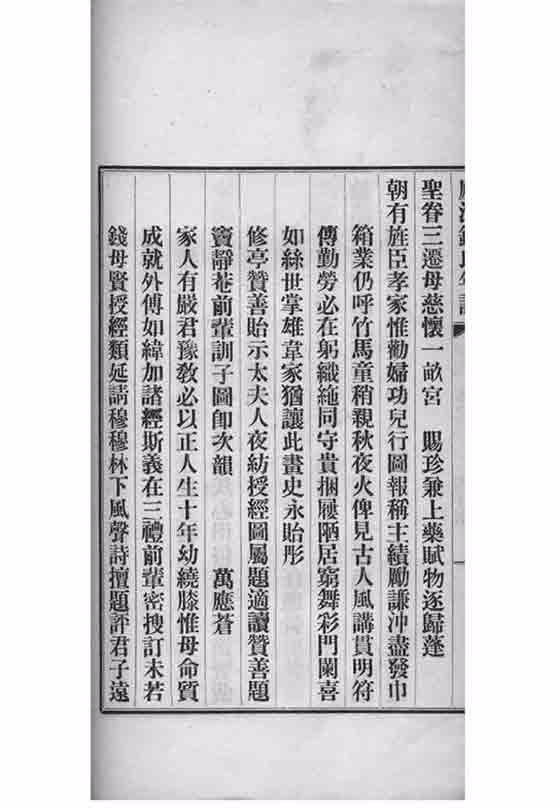 聖眷三遷母慈懷一畝宮　賜珍兼上藥賦物逐歸蓬
朝有旌臣孝家惟勸婦功兒行圖報稱主績勵謙沖盡發巾
箱業仍呼竹馬童稍親秋夜火俾見古人風講貫明符
傳勤勞必在躬織絁同守貴捆屨陋居窮舞彩門闌喜
如絲世掌雄韋家猶讓此畫史永貽彤
修亭贊善貽示太夫人夜紡授經圖屬題適讀贊善題
竇靜菴前輩訓子圖卽次韻　萬應蒼
家人有嚴君豫敎必以正人生十年幼繞膝惟母命質
成就外傅如緯加諸經斯義在三禮前輩密搜訂未若
錢母賢授經類延請穆穆林下風聲詩擅題評君子遠